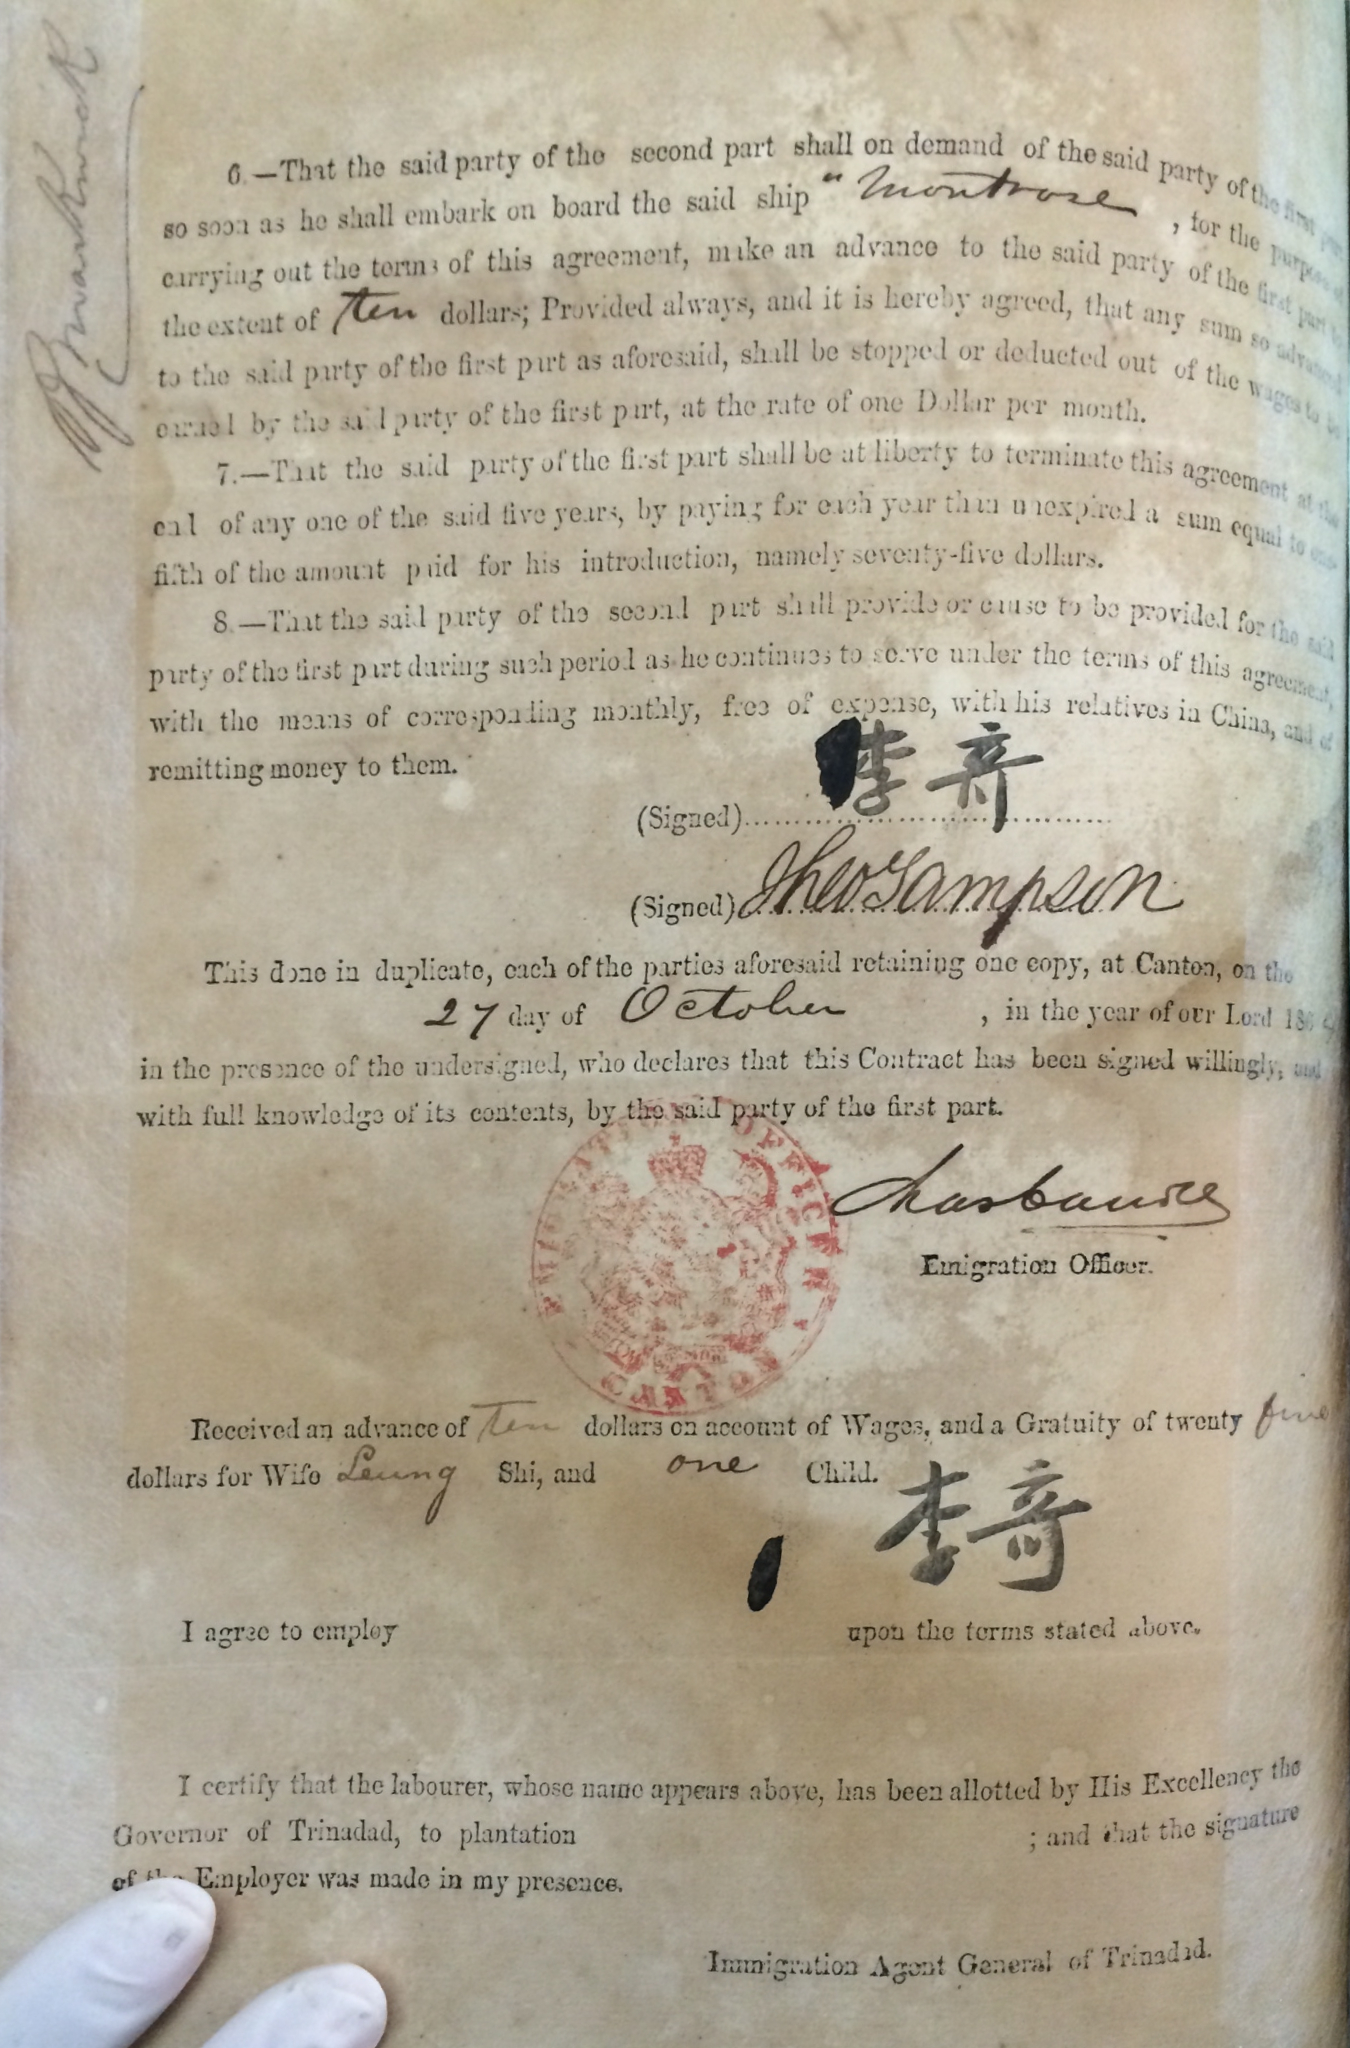 6.—That the said party of the second part shall on demand of the said party of the first part
so soon as he shall embark on board the said ship "Montrose, for the purpose of
carrying out the terms of this agreement, make an advance to the said party of the first part to
the extent of ten dollars; Provided always, and it is hereby agreed, that any sum so advanced
to the said party of the first part as aforesaid, shall be stopped or deducted out of the wages to be
earned by the said party of the first part, at the rate of one Dollar per month.
7.—That the said party of the first part shall be at liberty to terminate this agreement at the
end of any one of the said five years, by paying for each year then unexpired a sum equal to one-
fifth of the amount paid for his introduction, namely seventy-five dollars.
8.—That the said party of the second part shall provide or cause to be provided for the said
party of the first part during such period as he continues to serve under the terms of this agreement,
with the means of corresponding monthly, free of expense, with his relatives in China, and of
remitting money to them.
李奇
(Signed)
(Signed) Theo Sampson
This done in duplicate, each of the parties aforesaid retaining one copy, at Canton, on the
27 day of October, in the year of our Lord
in the presence of the undersigned, who declares that this Contract has been signed willingly, and
with full knowledge of its contents, by the said party of the first part.
EMIGRATION OFFICER
Emigration Officer.
Received an advance of ten dollars on account of Wages, and a Gratuity of twenty five
dollars for Wife Leung Shi, and one Child.
李奇
I agree to employ upon the terms stated above.
I certify that the labourer, whose name appears above, has been allotted by His Excellency the
Governor of Trinadad, to plantation ; and that the signature
of the Employer was made in my presence.
Immigration Agent General of Trinadad.